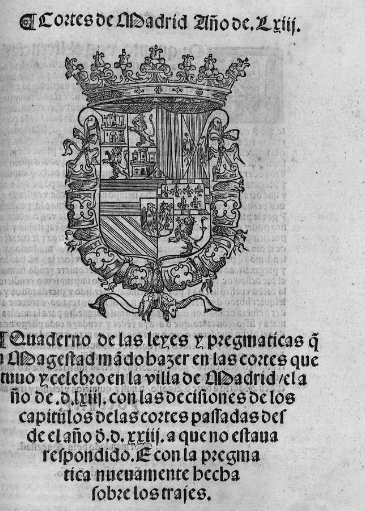 ¶ Cortes de Madrid Año de. Lxiij.
¶ Quaderno de las leyes y pregmaticas q̃
Magestad mãdo hazer en las cortes que
tuuo y celebro en la villa de Madrid / el a
ño de .d.lxiij. con las decisiones de los
capitulos de las cortes passadas des
de el año d̃.d.xxiij. a que no estaua
respondido. E con la pregma
tica nueuamente hecha
sobre los trajes.